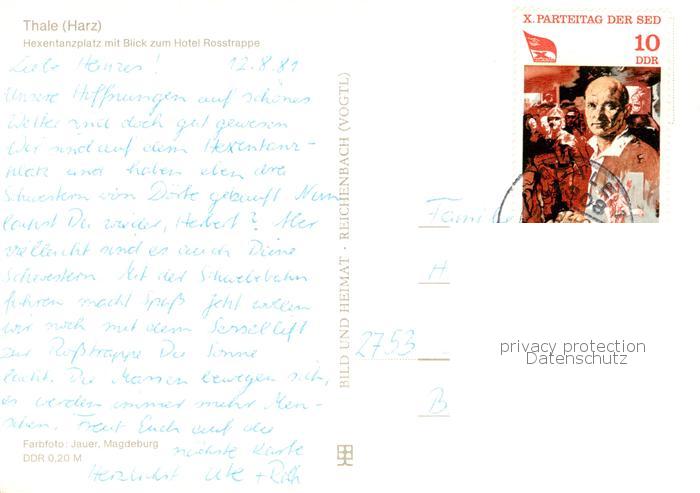 Thale (Harz)
Hexentanzplatz mit Blick zum Hotel Rosstrappe
Liebe Henzes! 12.8.81
Unsere Hoffnungen auf schönes
Wetter sind doch gut gewesen
Wir sind auf dem Hexentanz-
platz und haben eben drei
Schwestern von Dörte gekauft Nun
lachst Du wieder, Herbert? Aber
vielleicht sind es auch Deine
Schwestern Mit der Schwebebahn
fahren macht Spaß Jetzt wollen
wir noch mit dem Sessellift
zur Roßtrappe Die Sonne
lacht. Die Massen bewegen sich,
es werden immer mehr Men-
schen. Freut Euch auf die
nächste Karte
Herzlichst Ute +
Farbfoto: Jauer, Magdeburg
DDR 0,20 M
BILD UND HEIMAT · REICHENBACH (VOGTL)
X. PARTEITAG DER SED
10
DDR
Familie
H
2753
B
privacy protection
Datenschutz